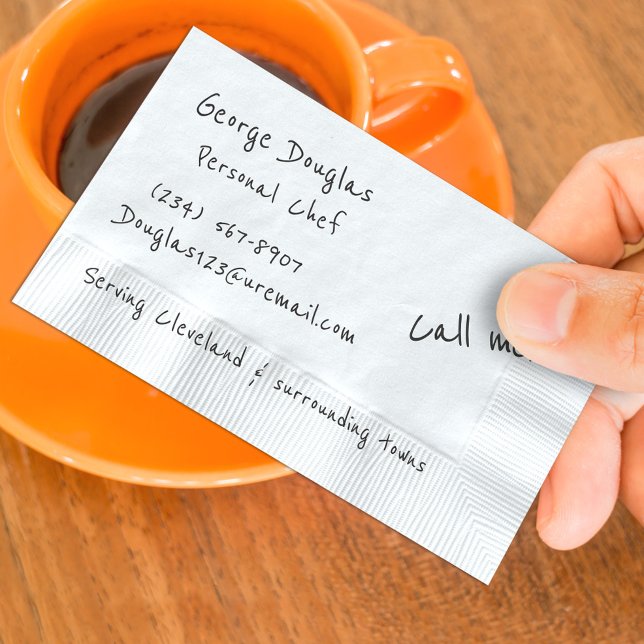 George Douglas
Personal Chef
(234) 567-8907
Douglas123@uremail.com
Call me
Serving Cleveland & surrounding towns